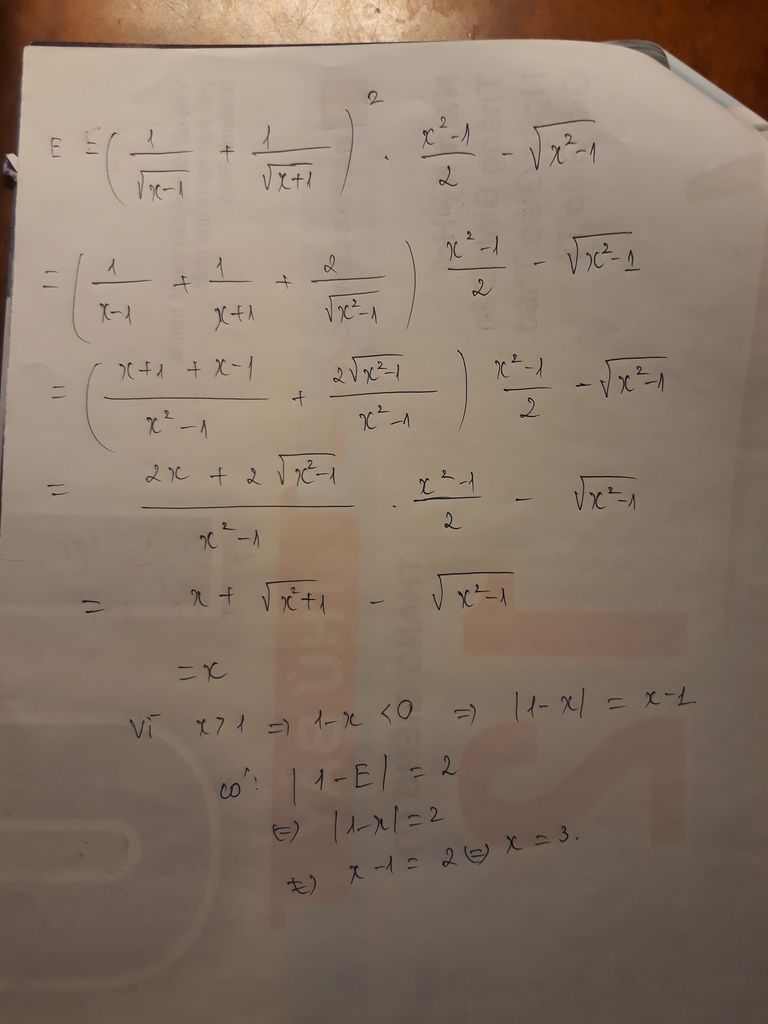 E = ( 1/√(x-1) + 1/√(x+1) )² . (x²-1)/2 - √(x²-1)
= ( 1/(x-1) + 1/(x+1) + 2/√(x²-1) ) (x²-1)/2 - √(x²-1)
= ( (x+1 + x-1)/(x²-1) + 2√(x²-1)/(x²-1) ) (x²-1)/2 - √(x²-1)
= (2x + 2√(x²-1))/(x²-1) . (x²-1)/2 - √(x²-1)
= x + √(x²+1) - √(x²-1)
= x
Vì x > 1 => 1-x < 0 => |1-x| = x-1
có: |1-E| = 2
<=> |1-x| = 2
<=> x-1 = 2 <=> x = 3.